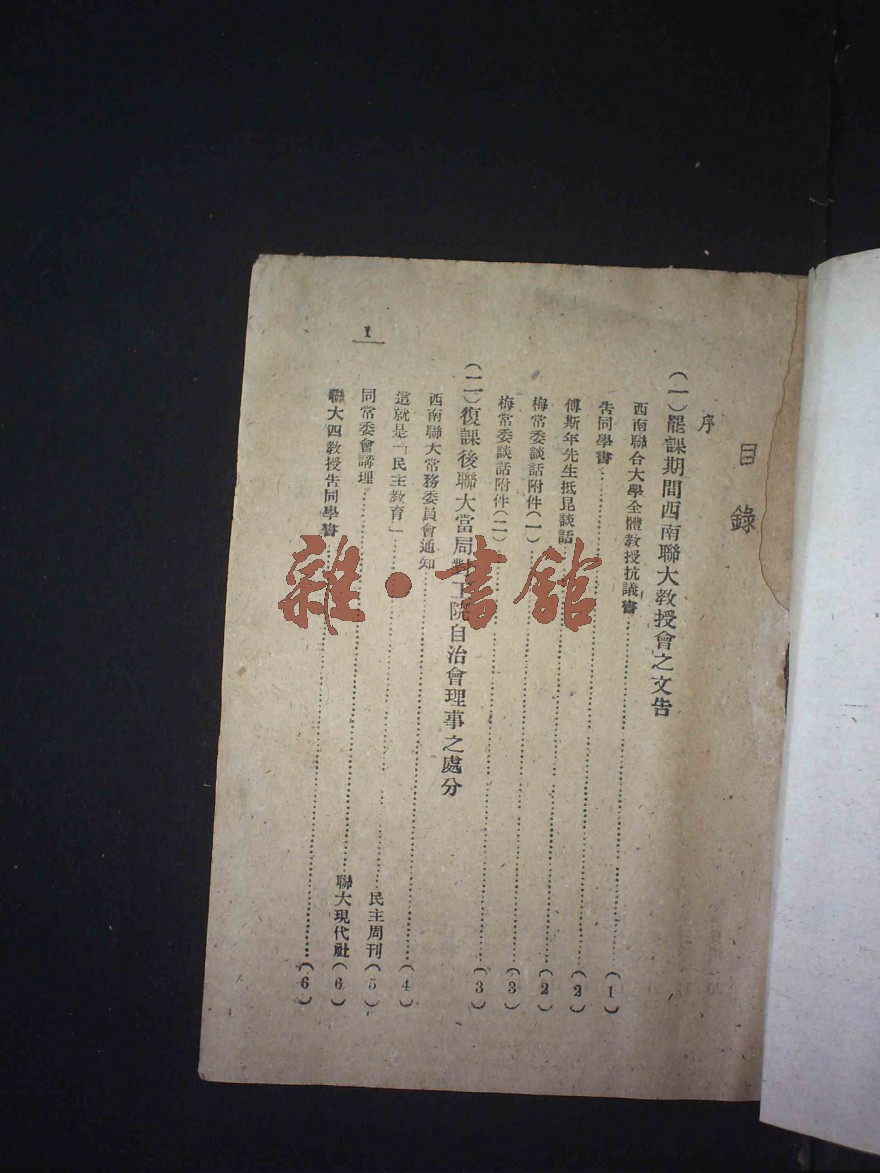 目錄
序
(一)罷課期間西南聯大教授會之文告
西南聯合大學全體教授抗議書……(1)
告同學書……(2)
傅斯年先生抵昆談話……(2)
梅常委談話附件(一)……(3)
梅常委談話附件(二)……(3)
(二)復課後聯大當局對工院自治會理事之處分
西南聯大常務委員會通知……(4)
這就是「民主教育」……民主周刊(5)
同常委會講理……聯大現代社(6)
聯大四教授告同學書……(6)
1
雜·書館